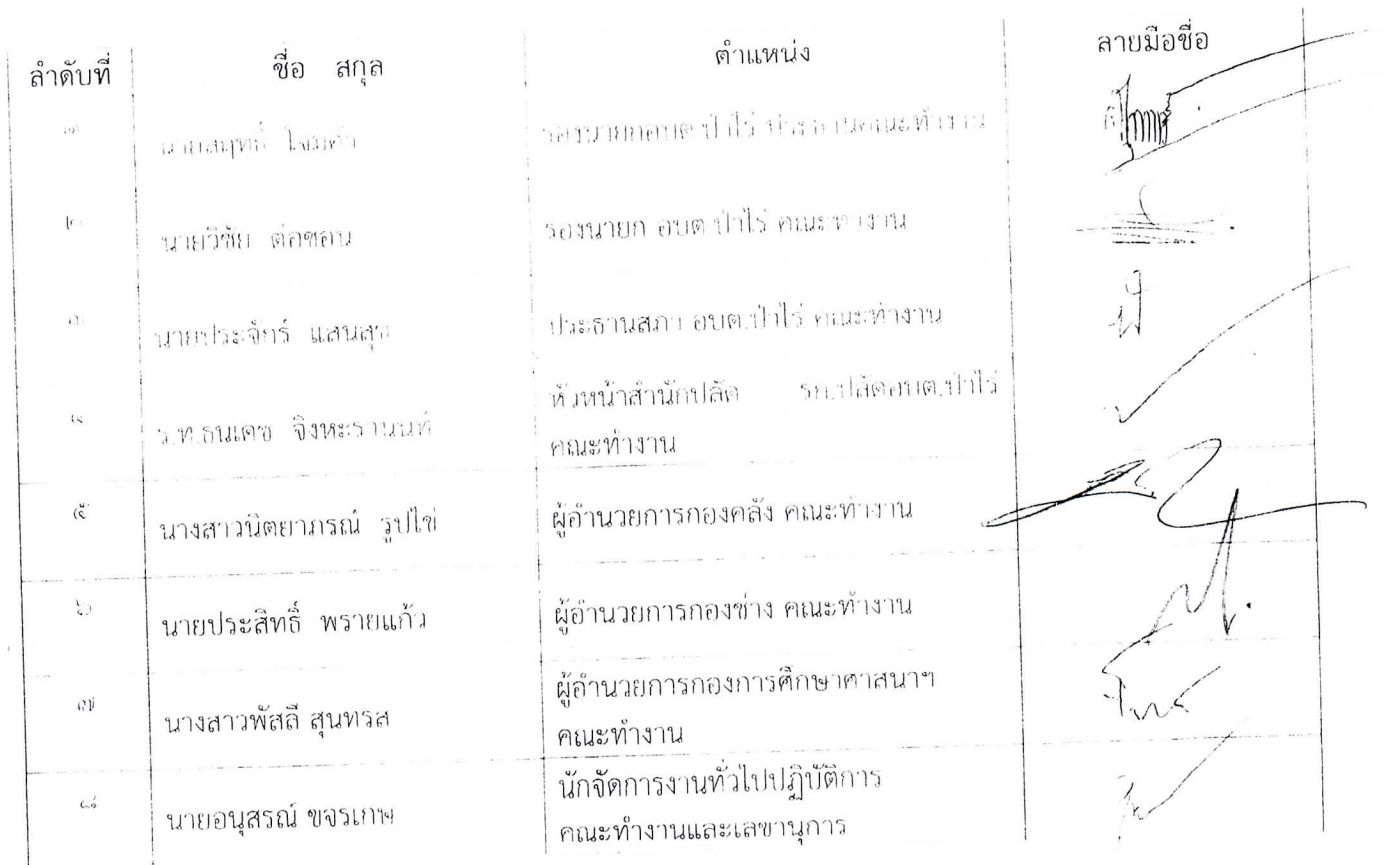 ลำดับที่ ชื่อ สกุล ตำแหน่ง ลายมือชื่อ
๑ นายสฤทธิ์ รองนายกอบต.ป่าไร่ ประธานคณะทำงาน
๒ นายวิชัย ต่อซอน รองนายก อบต.ป่าไร่ คณะทำงาน
๓ นายประจักร์ แสนสุข ประธานสภา อบต.ป่าไร่ คณะทำงาน
๔ ร.ท.ธนเดช จิงหะรานนท์ หัวหน้าสำนักปลัด รก.ปลัดอบต.ป่าไร่
คณะทำงาน
๕ นางสาวนิตยาภรณ์ รูปไข่ ผู้อำนวยการกองคลัง คณะทำงาน
๖ นายประสิทธิ์ พรายแก้ว ผู้อำนวยการกองช่าง คณะทำงาน
๗ นางสาวพัสลี สุนทรส ผู้อำนวยการกองการศึกษาศาสนาฯ
คณะทำงาน
๘ นายอนุสรณ์ ขจรเกษ นักจัดการงานทั่วไปปฏิบัติการ
คณะทำงานและเลขานุการ